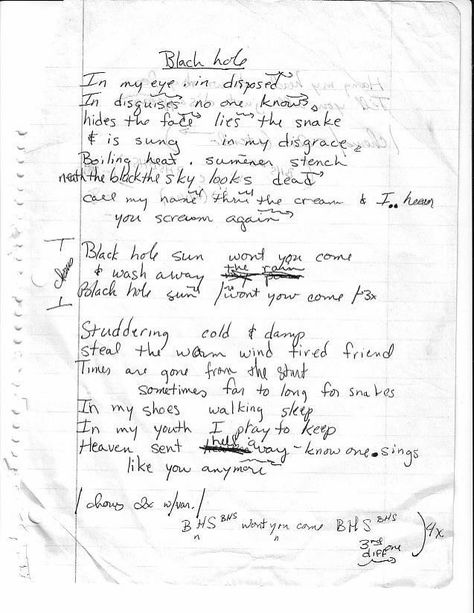 Black hole
In my eye in disposed
In disguises no one knows
hides the face lies the snake
& is sung in my disgrace
Boiling heat. summer stench
neath the black the sky looks dead
call my name thru the cream & I..
you scream again
chorus
Black hole sun wont you come
& wash away the rain
Black hole sun /wont you come/ 3x
Studdering cold & damp
steal the warm wind tired friend
Times are gone from the start
sometimes far to long for snakes
In my shoes walking sleep
In my youth I pray to keep
Heaven sent hell away - know one sings
like you anymore
/chorus 2x w/var./
BHS BHS wont you come BHS BHS ) 4x
3rd one
diff